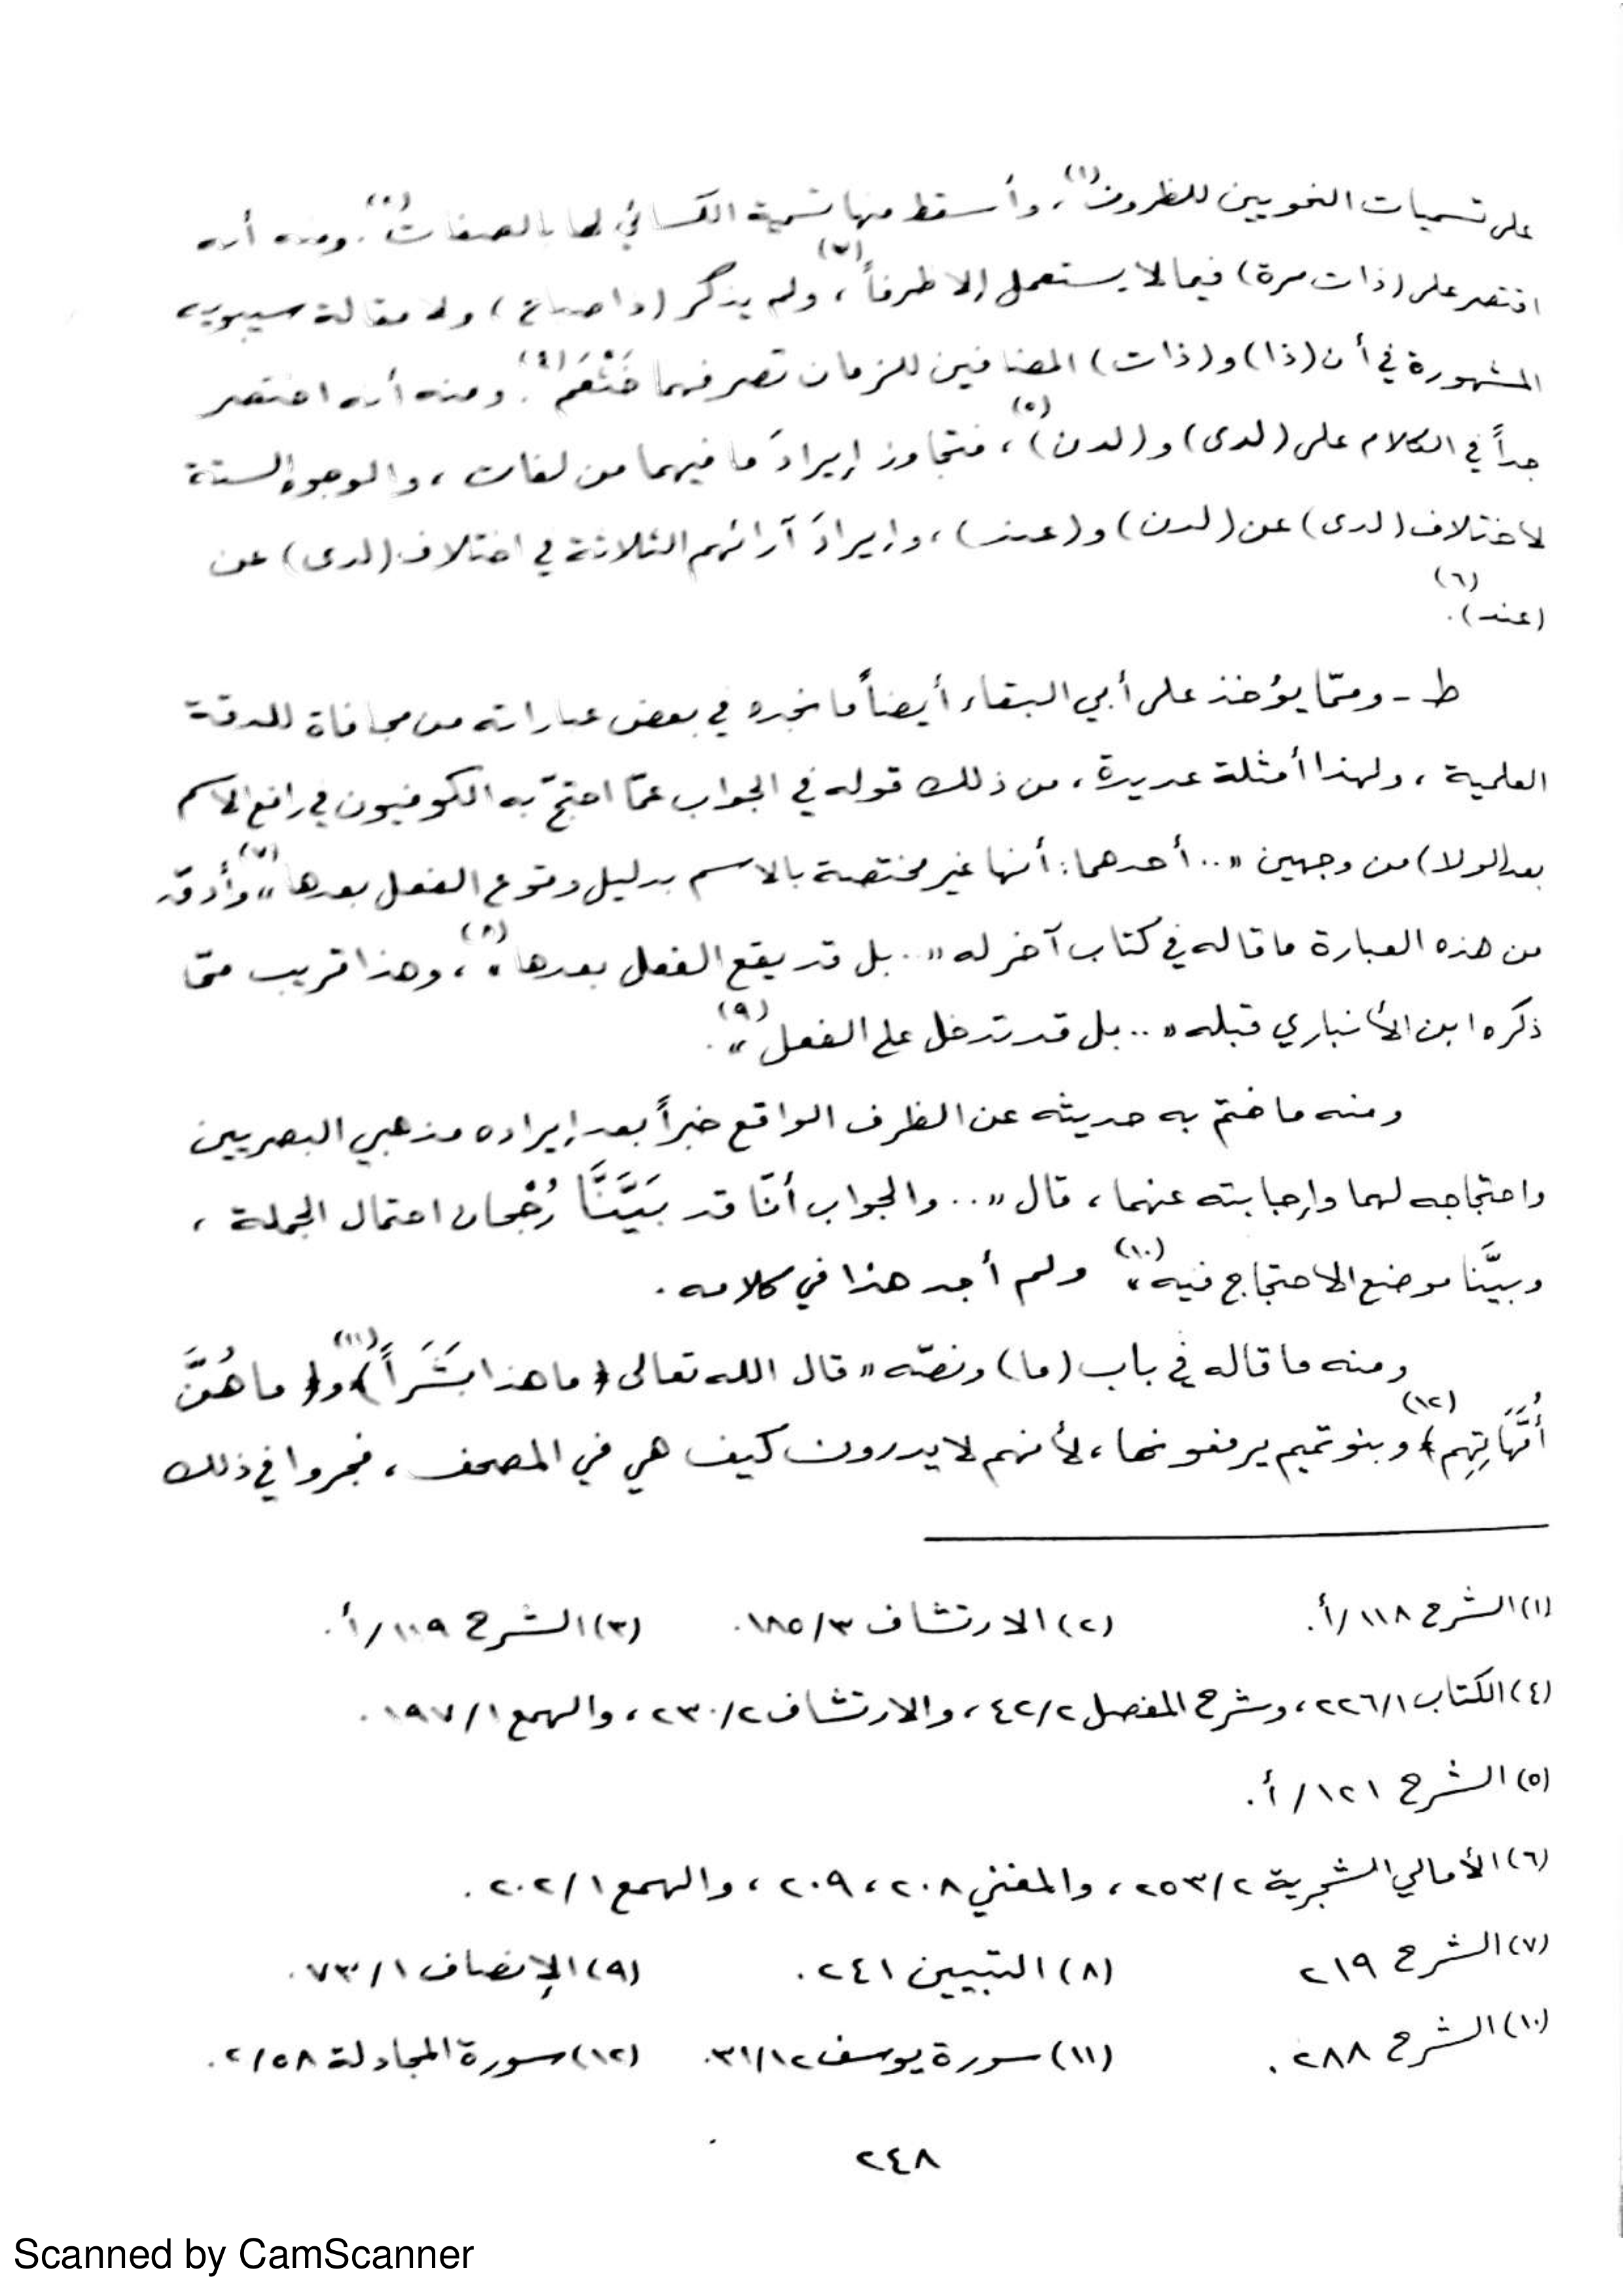 على تسميات النحويين للظروف(١)، وأسقط منها تسمية الكسائي لها بالصفات(٢). ومنه أنه
اقتصر على (ذات مرة) فيما لا يستعمل إلا ظرفاً(٣)، ولم يذكر (ذا صباح) ولا مقالة سيبويه
المشهورة في أن (ذا) و(ذات) المضافين للزمان تصرفهما خَثْعَم(٤). ومنه أنه اختصر
جداً في الكلام على (لدى) و(لدن)(٥)، فتجاوز إيرادَ ما فيهما من لغات، والوجوه الستة
لاختلاف (لدى) عن (لدن) و(عند)، وإيرادَ آرائهم الثلاثة في اختلاف (لدى) عن
(عند)(٦).
ط - وممّا يؤخذ على أبي البقاء أيضاً ما نجده في بعض عباراته من مجافاة للدقة
العلمية، ولهذا أمثلة عديدة، من ذلك قوله في الجواب عمّا احتجّ به الكوفيون في رافع الاسم
بعد (لولا) من وجهين «.. أحدهما: أنها غير مختصة بالاسم بدليل وقوع الفعل بعدها»(٧) وأدقّ
من هذه العبارة ما قاله في كتاب آخر له «.. بل قد يقع الفعل بعدها»(٨)، وهذا قريب ممّا
ذكره ابن الأنباري قبله «.. بل قد تدخل على الفعل»(٩).
ومنه ما ختم به حديثه عن الظرف الواقع خبراً بعد إيراده مذهبي البصريين
واحتجاجه لهما وإجابته عنهما، قال «.. والجواب أنّا قد بَيَّنَّا رُجْحان احتمال الجملة،
وبيَّنا موضع الاحتجاج فيه»(١٠) ولم أجد هذا في كلامه.
ومنه ما قاله في باب (ما) ونصّه «قال الله تعالى ﴿ما هذا بَشَرَاً﴾(١١) و﴿ما هُنَّ
أُمَّهَاتِهِم﴾(١٢) وبنو تميم يرفعونها، لأنهم لا يدرون كيف هي في المصحف، فجروا في ذلك
(١) الشرح ١١٨/أ. (٢) الارتشاف ١٨٥/٣. (٣) الشرح ١١٩/أ.
(٤) الكتاب ٢٢٦/١، وشرح المفصل ٤٢/٢، والارتشاف ٢٣٠/٢، والهمع ١٩٧/١.
(٥) الشرح ١٢١/أ.
(٦) الأمالي الشجرية ٢٥٣/٢، والمغني ٢٠٨، ٢٠٩، والهمع ٢٠٢/١.
(٧) الشرح ٢١٩ (٨) التبيين ٢٤١. (٩) الإنصاف ٧٣/١.
(١٠) الشرح ٢٨٨. (١١) سورة يوسف ٣١/١٢. (١٢) سورة المجادلة ٢/٥٨.
٢٤٨
Scanned by CamScanner